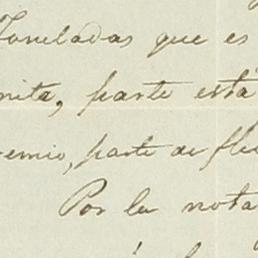 Toneladas que es
nita, parte está
remio, parte de fle
Por la nota